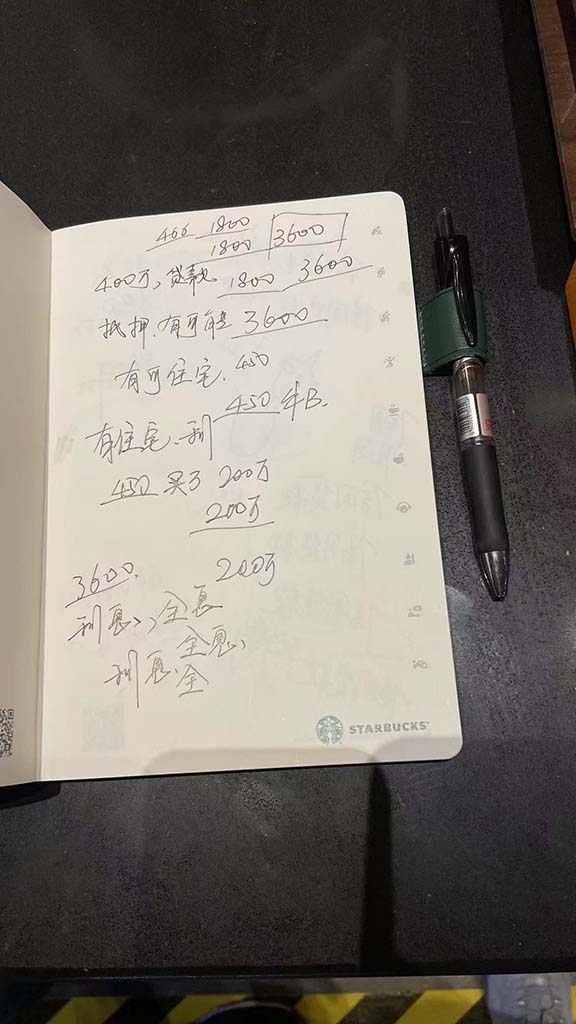 466 1800
1800 3600
400万、贷款 1800 3600
抵押、有可能 3600
有可住宅、450
450 年B.
有住宅、利
450 买了 200万
200万
3600. 200万
利息、全息
全息、
利息、全
STARBUCKS